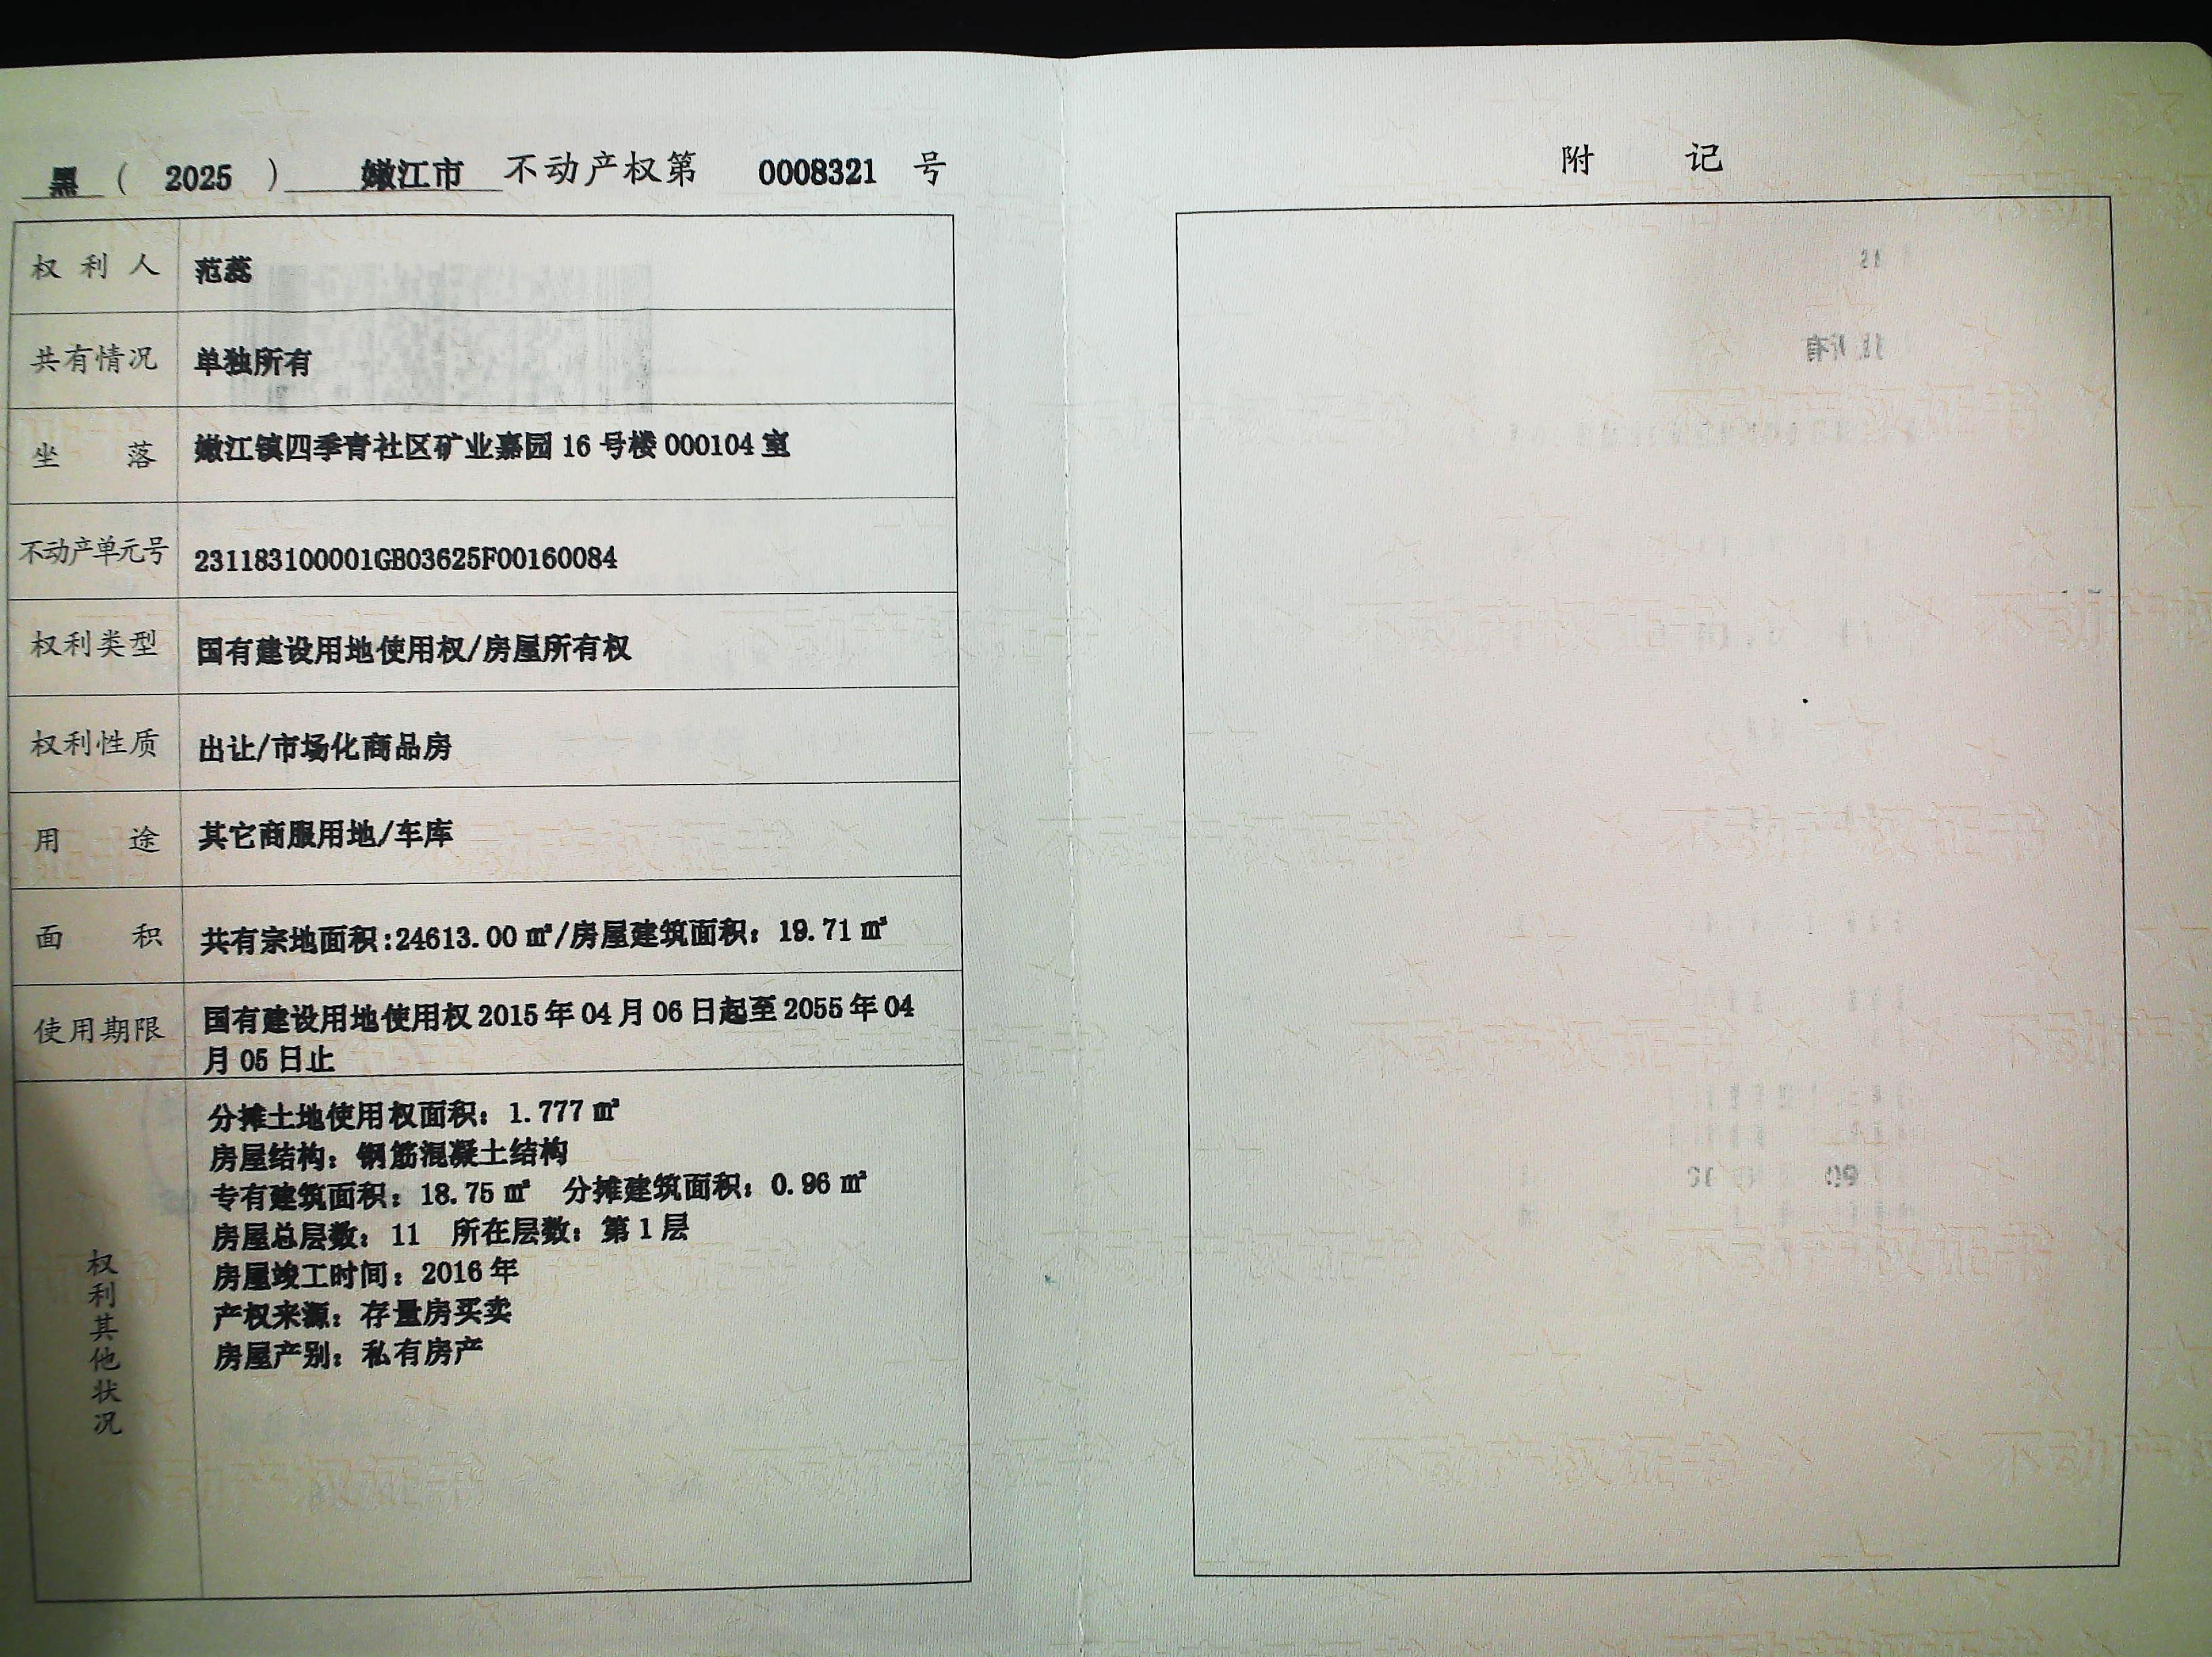 黑（2025）嫩江市不动产权第 0008321 号
权利人 范蕊
共有情况 单独所有
坐落 嫩江镇四季青社区矿业嘉园 16 号楼 000104 室
不动产单元号 231183100001GB03625F00160084
权利类型 国有建设用地使用权/房屋所有权
权利性质 出让/市场化商品房
用途 其它商服用地/车库
面积 共有宗地面积:24613.00 ㎡/房屋建筑面积：19.71 ㎡
使用期限 国有建设用地使用权 2015 年 04 月 06 日起至 2055 年 04
月 05 日止
权利其他状况
分摊土地使用权面积：1.777 ㎡
房屋结构：钢筋混凝土结构
专有建筑面积：18.75 ㎡ 分摊建筑面积：0.96 ㎡
房屋总层数：11 所在层数：第 1 层
房屋竣工时间：2016 年
产权来源：存量房买卖
房屋产别：私有房产
附记